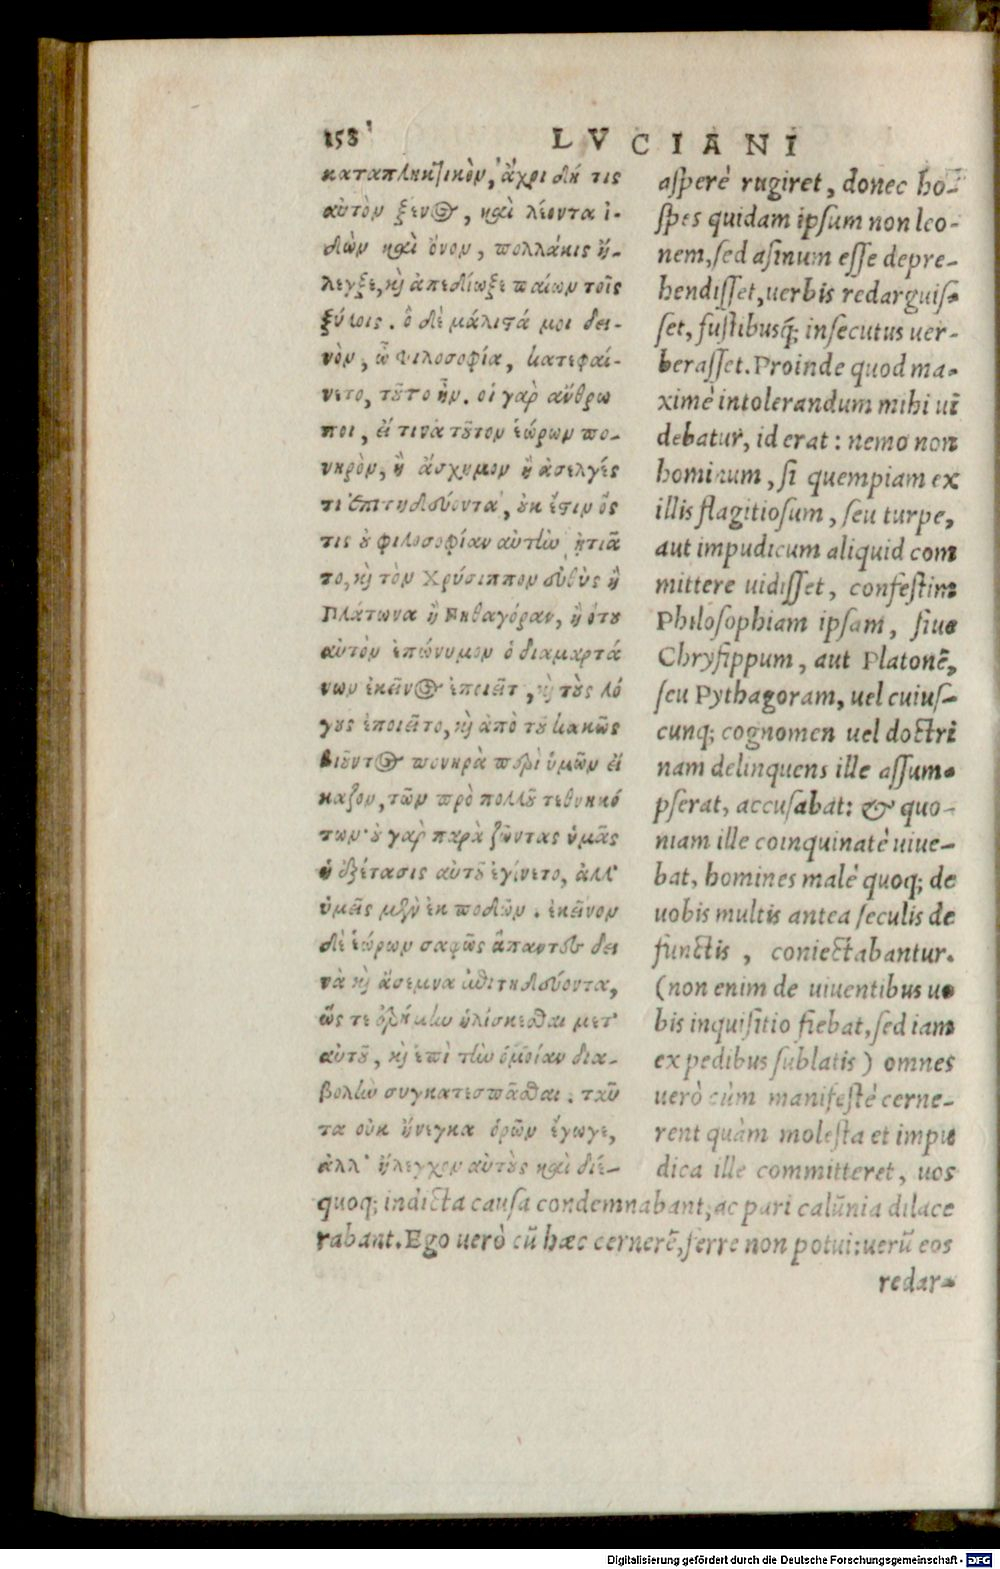 158
LVCIANI
καταπληκτικὸν, ἄχρι δή τις
αὐτὸν ξένος, καὶ λέοντα ἰ-
δὼν καὶ ὄνον, πολλάκις ἤ-
λεγξε, καὶ ἀπεδίωξε παίων τοῖς
ξύλοις. ὃ δὲ μάλιστά μοι δει-
νὸν, ὦ φιλοσοφία, κατεφαί-
νετο, τοῦτο ἦν. οἱ γὰρ ἄνθρω
ποι, εἴ τινα τούτων ἑώρων πο-
νηρὸν, ἢ ἄσχημον ἢ ἀσελγές
τι ἐπιτηδεύοντα, οὐκ ἔστιν ὅς
τις οὐ φιλοσοφίαν αὐτὴν ᾐτιᾶ
το, καὶ τὸν Χρύσιππον εὐθὺς ἢ
Πλάτωνα ἢ Πυθαγόραν, ἢ ὅτου
αὐτὸν ἐπώνυμον ὁ διαμαρτά
νων ἐκεῖνος ἐποιεῖτο, καὶ τοὺς λό
γους ἐποιεῖτο, καὶ ἀπὸ τοῦ κακῶς
βιοῦντος πονηρὰ περὶ ὑμῶν εἴ
καζον, τῶν πρὸ πολλοῦ τεθνηκό
των· οὐ γὰρ παρὰ ζῶντας ὑμᾶς
ἡ ἐξέτασις αὐτοῦ ἐγίνετο, ἀλλ'
ὑμεῖς μὲν ἐκ ποδῶν. ἐκεῖνον
δὲ ἑώρων σαφῶς ἅπαντες δει
νὰ καὶ ἄσεμνα ἐπιτηδεύοντα,
ὥς τε ἐρήμην ἡλίσκεσθαι μετ'
αὐτοῦ, καὶ ἐπὶ τὴν ὁμοίαν δια-
βολὴν συγκατεσπᾶσθαι. ταῦ
τα οὐκ ἤνεγκα ὁρῶν ἔγωγε,
ἀλλ' ἤλεγχον αὐτοὺς καὶ διέ-
asperè rugiret, donec ho-
spes quidam ipsum non leo-
nem, sed asinum esse depre-
hendisset, uerbis redarguis-
set, fustibusq; insecutus uer-
berasset. Proinde quod ma-
ximè intolerandum mihi ui
debatur, id erat: nemo non
hominum, si quempiam ex
illis flagitiosum, seu turpe,
aut impudicum aliquid com
mittere uidisset, confestim
Philosophiam ipsam, siue
Chrysippum, aut Platonē,
seu Pythagoram, uel cuius-
cunq; cognomen uel doctri
nam delinquens ille assum-
pserat, accusabat: & quo-
niam ille coinquinatè uiue-
bat, homines malè quoq; de
uobis multis antea seculis de
functis, coniectabantur.
(non enim de uiuentibus uo
bis inquisitio fiebat, sed iam
ex pedibus sublatis) omnes
uerò cùm manifestè cerne-
rent quàm molesta et impu
dica ille committeret, uos
quoq; indicta causa condemnabant, ac pari calūnia dilace
rabant. Ego uerò cū hæc cernerē, ferre non potui: uerū eos
redar-
Digitalisierung gefördert durch die Deutsche Forschungsgemeinschaft - DFG